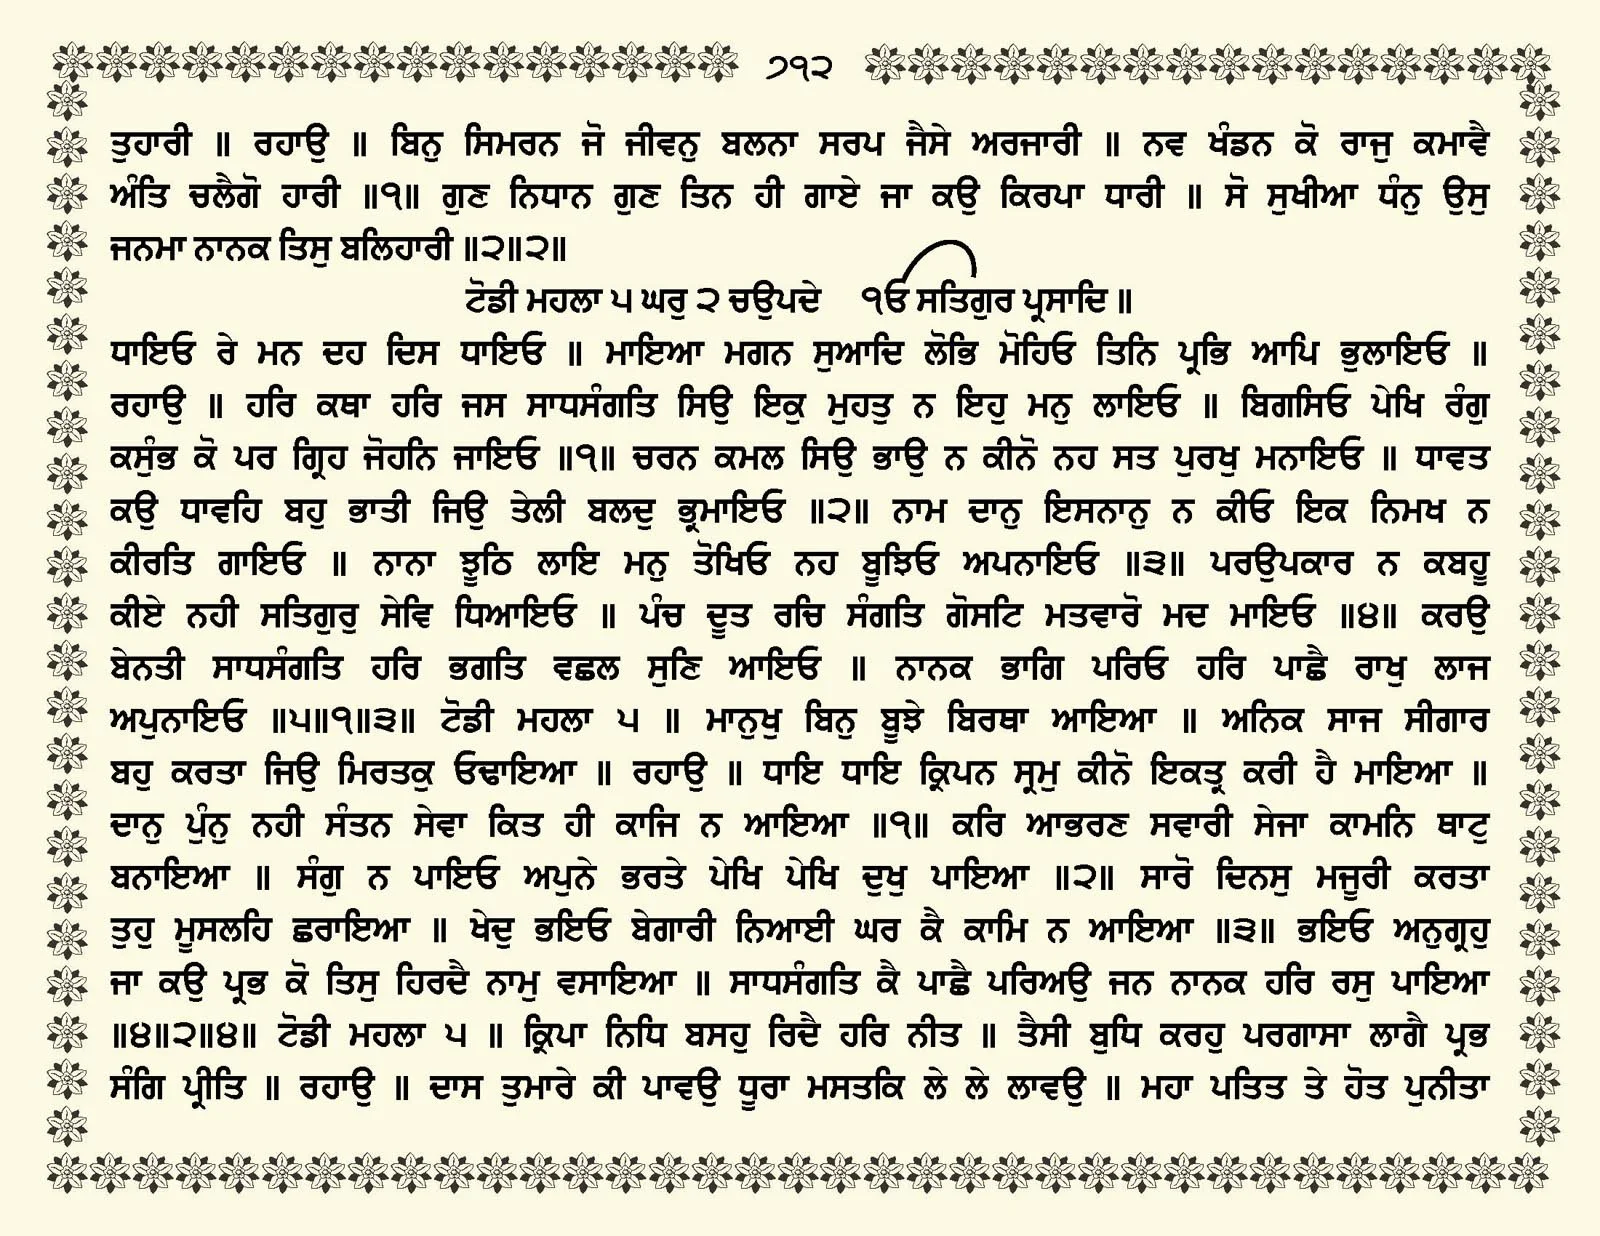 ੭੧੨
ਤੁਹਾਰੀ ॥ ਰਹਾਉ ॥ ਬਿਨੁ ਸਿਮਰਨ ਜੋ ਜੀਵਨੁ ਬਲਨਾ ਸਰਪ ਜੈਸੇ ਅਰਜਾਰੀ ॥ ਨਵ ਖੰਡਨ ਕੋ ਰਾਜੁ ਕਮਾਵੈ
ਅੰਤਿ ਚਲੈਗੋ ਹਾਰੀ ॥੧॥ ਗੁਣ ਨਿਧਾਨ ਗੁਣ ਤਿਨ ਹੀ ਗਾਏ ਜਾ ਕਉ ਕਿਰਪਾ ਧਾਰੀ ॥ ਸੋ ਸੁਖੀਆ ਧੰਨੁ ਉਸੁ
ਜਨਮਾ ਨਾਨਕ ਤਿਸੁ ਬਲਿਹਾਰੀ ॥੨॥੨॥
ਟੋਡੀ ਮਹਲਾ ੫ ਘਰੁ ੨ ਚਉਪਦੇ ੴ ਸਤਿਗੁਰ ਪ੍ਰਸਾਦਿ ॥
ਧਾਇਓ ਰੇ ਮਨ ਦਹ ਦਿਸ ਧਾਇਓ ॥ ਮਾਇਆ ਮਗਨ ਸੁਆਦਿ ਲੋਭਿ ਮੋਹਿਓ ਤਿਨਿ ਪ੍ਰਭਿ ਆਪਿ ਭੁਲਾਇਓ ॥
ਰਹਾਉ ॥ ਹਰਿ ਕਥਾ ਹਰਿ ਜਸ ਸਾਧਸੰਗਤਿ ਸਿਉ ਇਕੁ ਮੁਹਤੁ ਨ ਇਹੁ ਮਨੁ ਲਾਇਓ ॥ ਬਿਗਸਿਓ ਪੇਖਿ ਰੰਗੁ
ਕਸੁੰਭ ਕੋ ਪਰ ਗ੍ਰਿਹ ਜੋਹਨਿ ਜਾਇਓ ॥੧॥ ਚਰਨ ਕਮਲ ਸਿਉ ਭਾਉ ਨ ਕੀਨੋ ਨਹ ਸਤ ਪੁਰਖੁ ਮਨਾਇਓ ॥ ਧਾਵਤ
ਕਉ ਧਾਵਹਿ ਬਹੁ ਭਾਤੀ ਜਿਉ ਤੇਲੀ ਬਲਦੁ ਭ੍ਰਮਾਇਓ ॥੨॥ ਨਾਮ ਦਾਨੁ ਇਸਨਾਨੁ ਨ ਕੀਓ ਇਕ ਨਿਮਖ ਨ
ਕੀਰਤਿ ਗਾਇਓ ॥ ਨਾਨਾ ਝੂਠਿ ਲਾਇ ਮਨੁ ਤੋਖਿਓ ਨਹ ਬੂਝਿਓ ਅਪਨਾਇਓ ॥੩॥ ਪਰਉਪਕਾਰ ਨ ਕਬਹੂ
ਕੀਏ ਨਹੀ ਸਤਿਗੁਰੁ ਸੇਵਿ ਧਿਆਇਓ ॥ ਪੰਚ ਦੂਤ ਰਚਿ ਸੰਗਤਿ ਗੋਸਟਿ ਮਤਵਾਰੋ ਮਦ ਮਾਇਓ ॥੪॥ ਕਰਉ
ਬੇਨਤੀ ਸਾਧਸੰਗਤਿ ਹਰਿ ਭਗਤਿ ਵਛਲ ਸੁਣਿ ਆਇਓ ॥ ਨਾਨਕ ਭਾਗਿ ਪਰਿਓ ਹਰਿ ਪਾਛੈ ਰਾਖੁ ਲਾਜ
ਅਪੁਨਾਇਓ ॥੫॥੧॥੩॥ ਟੋਡੀ ਮਹਲਾ ੫ ॥ ਮਾਨੁਖੁ ਬਿਨੁ ਬੂਝੇ ਬਿਰਥਾ ਆਇਆ ॥ ਅਨਿਕ ਸਾਜ ਸੀਗਾਰ
ਬਹੁ ਕਰਤਾ ਜਿਉ ਮਿਰਤਕੁ ਓਢਾਇਆ ॥ ਰਹਾਉ ॥ ਧਾਇ ਧਾਇ ਕ੍ਰਿਪਨ ਸ੍ਰਮੁ ਕੀਨੋ ਇਕਤ੍ਰ ਕਰੀ ਹੈ ਮਾਇਆ ॥
ਦਾਨੁ ਪੁੰਨੁ ਨਹੀ ਸੰਤਨ ਸੇਵਾ ਕਿਤ ਹੀ ਕਾਜਿ ਨ ਆਇਆ ॥੧॥ ਕਰਿ ਆਭਰਣ ਸਵਾਰੀ ਸੇਜਾ ਕਾਮਨਿ ਥਾਟੁ
ਬਨਾਇਆ ॥ ਸੰਗੁ ਨ ਪਾਇਓ ਅਪੁਨੇ ਭਰਤੇ ਪੇਖਿ ਪੇਖਿ ਦੁਖੁ ਪਾਇਆ ॥੨॥ ਸਾਰੋ ਦਿਨਸੁ ਮਜੂਰੀ ਕਰਤਾ
ਤੁਹੁ ਮੂਸਲਹਿ ਛਰਾਇਆ ॥ ਖੇਦੁ ਭਇਓ ਬੇਗਾਰੀ ਨਿਆਈ ਘਰ ਕੈ ਕਾਮਿ ਨ ਆਇਆ ॥੩॥ ਭਇਓ ਅਨੁਗ੍ਰਹੁ
ਜਾ ਕਉ ਪ੍ਰਭ ਕੋ ਤਿਸੁ ਹਿਰਦੈ ਨਾਮੁ ਵਸਾਇਆ ॥ ਸਾਧਸੰਗਤਿ ਕੈ ਪਾਛੈ ਪਰਿਅਉ ਜਨ ਨਾਨਕ ਹਰਿ ਰਸੁ ਪਾਇਆ
॥੪॥੨॥੪॥ ਟੋਡੀ ਮਹਲਾ ੫ ॥ ਕ੍ਰਿਪਾ ਨਿਧਿ ਬਸਹੁ ਰਿਦੈ ਹਰਿ ਨੀਤ ॥ ਤੈਸੀ ਬੁਧਿ ਕਰਹੁ ਪਰਗਾਸਾ ਲਾਗੈ ਪ੍ਰਭ
ਸੰਗਿ ਪ੍ਰੀਤਿ ॥ ਰਹਾਉ ॥ ਦਾਸ ਤੁਮਾਰੇ ਕੀ ਪਾਵਉ ਧੂਰਾ ਮਸਤਕਿ ਲੇ ਲੇ ਲਾਵਉ ॥ ਮਹਾ ਪਤਿਤ ਤੇ ਹੋਤ ਪੁਨੀਤਾ